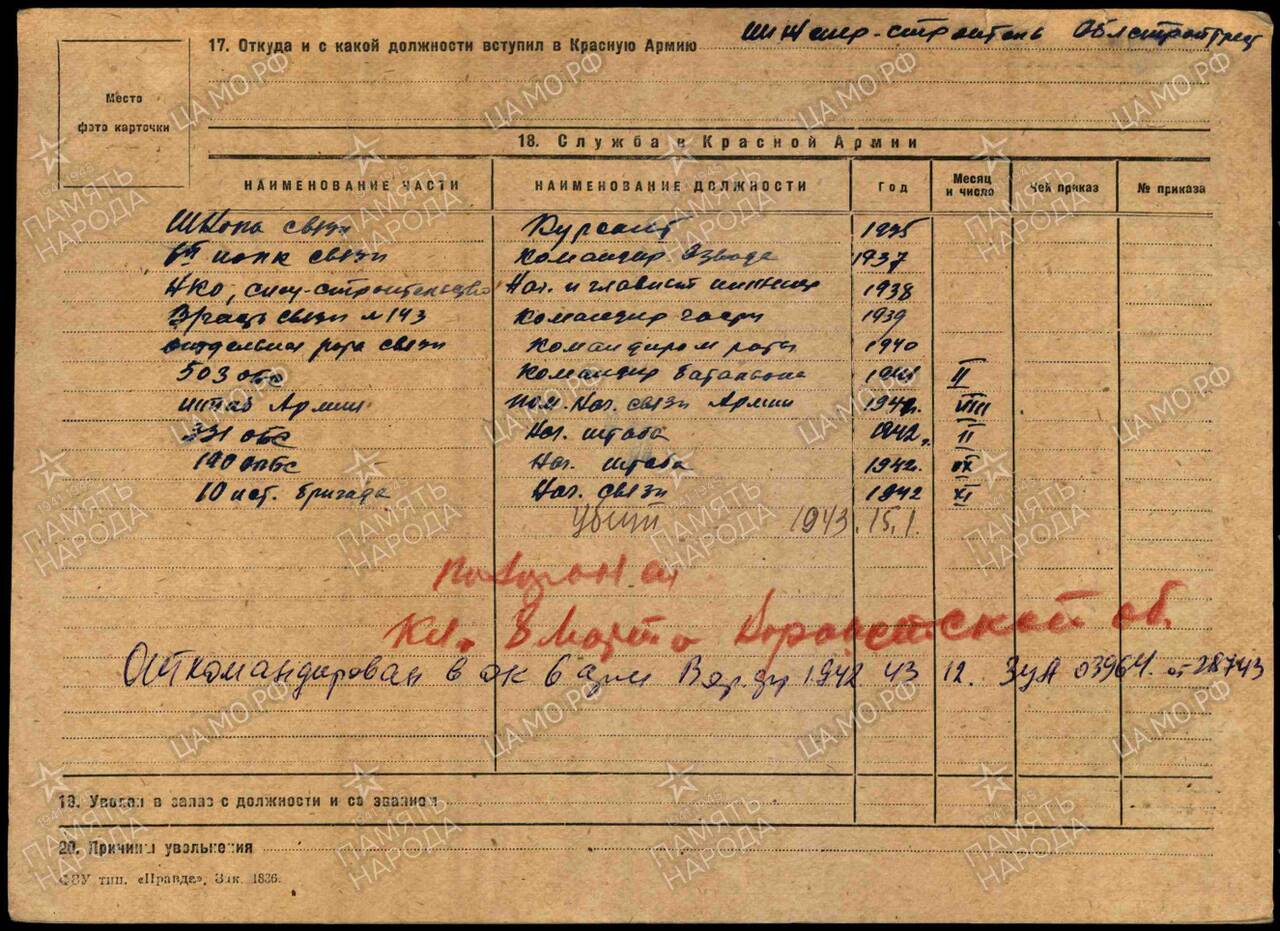 17. Откуда и с какой должности вступил в Красную Армию инженер-строитель
Место
фото карточки
18. Служба в Красной Армии
НАИМЕНОВАНИЕ ЧАСТИ НАИМЕНОВАНИЕ ДОЛЖНОСТИ Год Месяц и число Чей приказ № приказа
Школа связи Курсант 1935
полк связи Командир взвода 1937
НКО, спец-строительство Нач. и 1938
связи № 143 Командир части 1939
отдельная рота связи Командиром роты 1940
503 обс Командир батальона 1941 II
штаб Армии пом. Нач. связи Армии 194 VIII
331 обс Нач. штаба 1942 г. II
190 опбс Нач. штаба 1942. IX
10 ист. бригада Нач. связи 1942 XI
убит 1943. 15.1.
8 Марта Воронежской об.
Откомандирован в ок 6 арм 1942 43 12. ЗУА 03964. от 28743
19. Уволен в запас с должности и со званием
20. Причины увольнения
ФЗУ тип. «Правда», Зак. 1836.
ЦА МО РФ
1941-1945
ПАМЯТЬ
НАРОДА